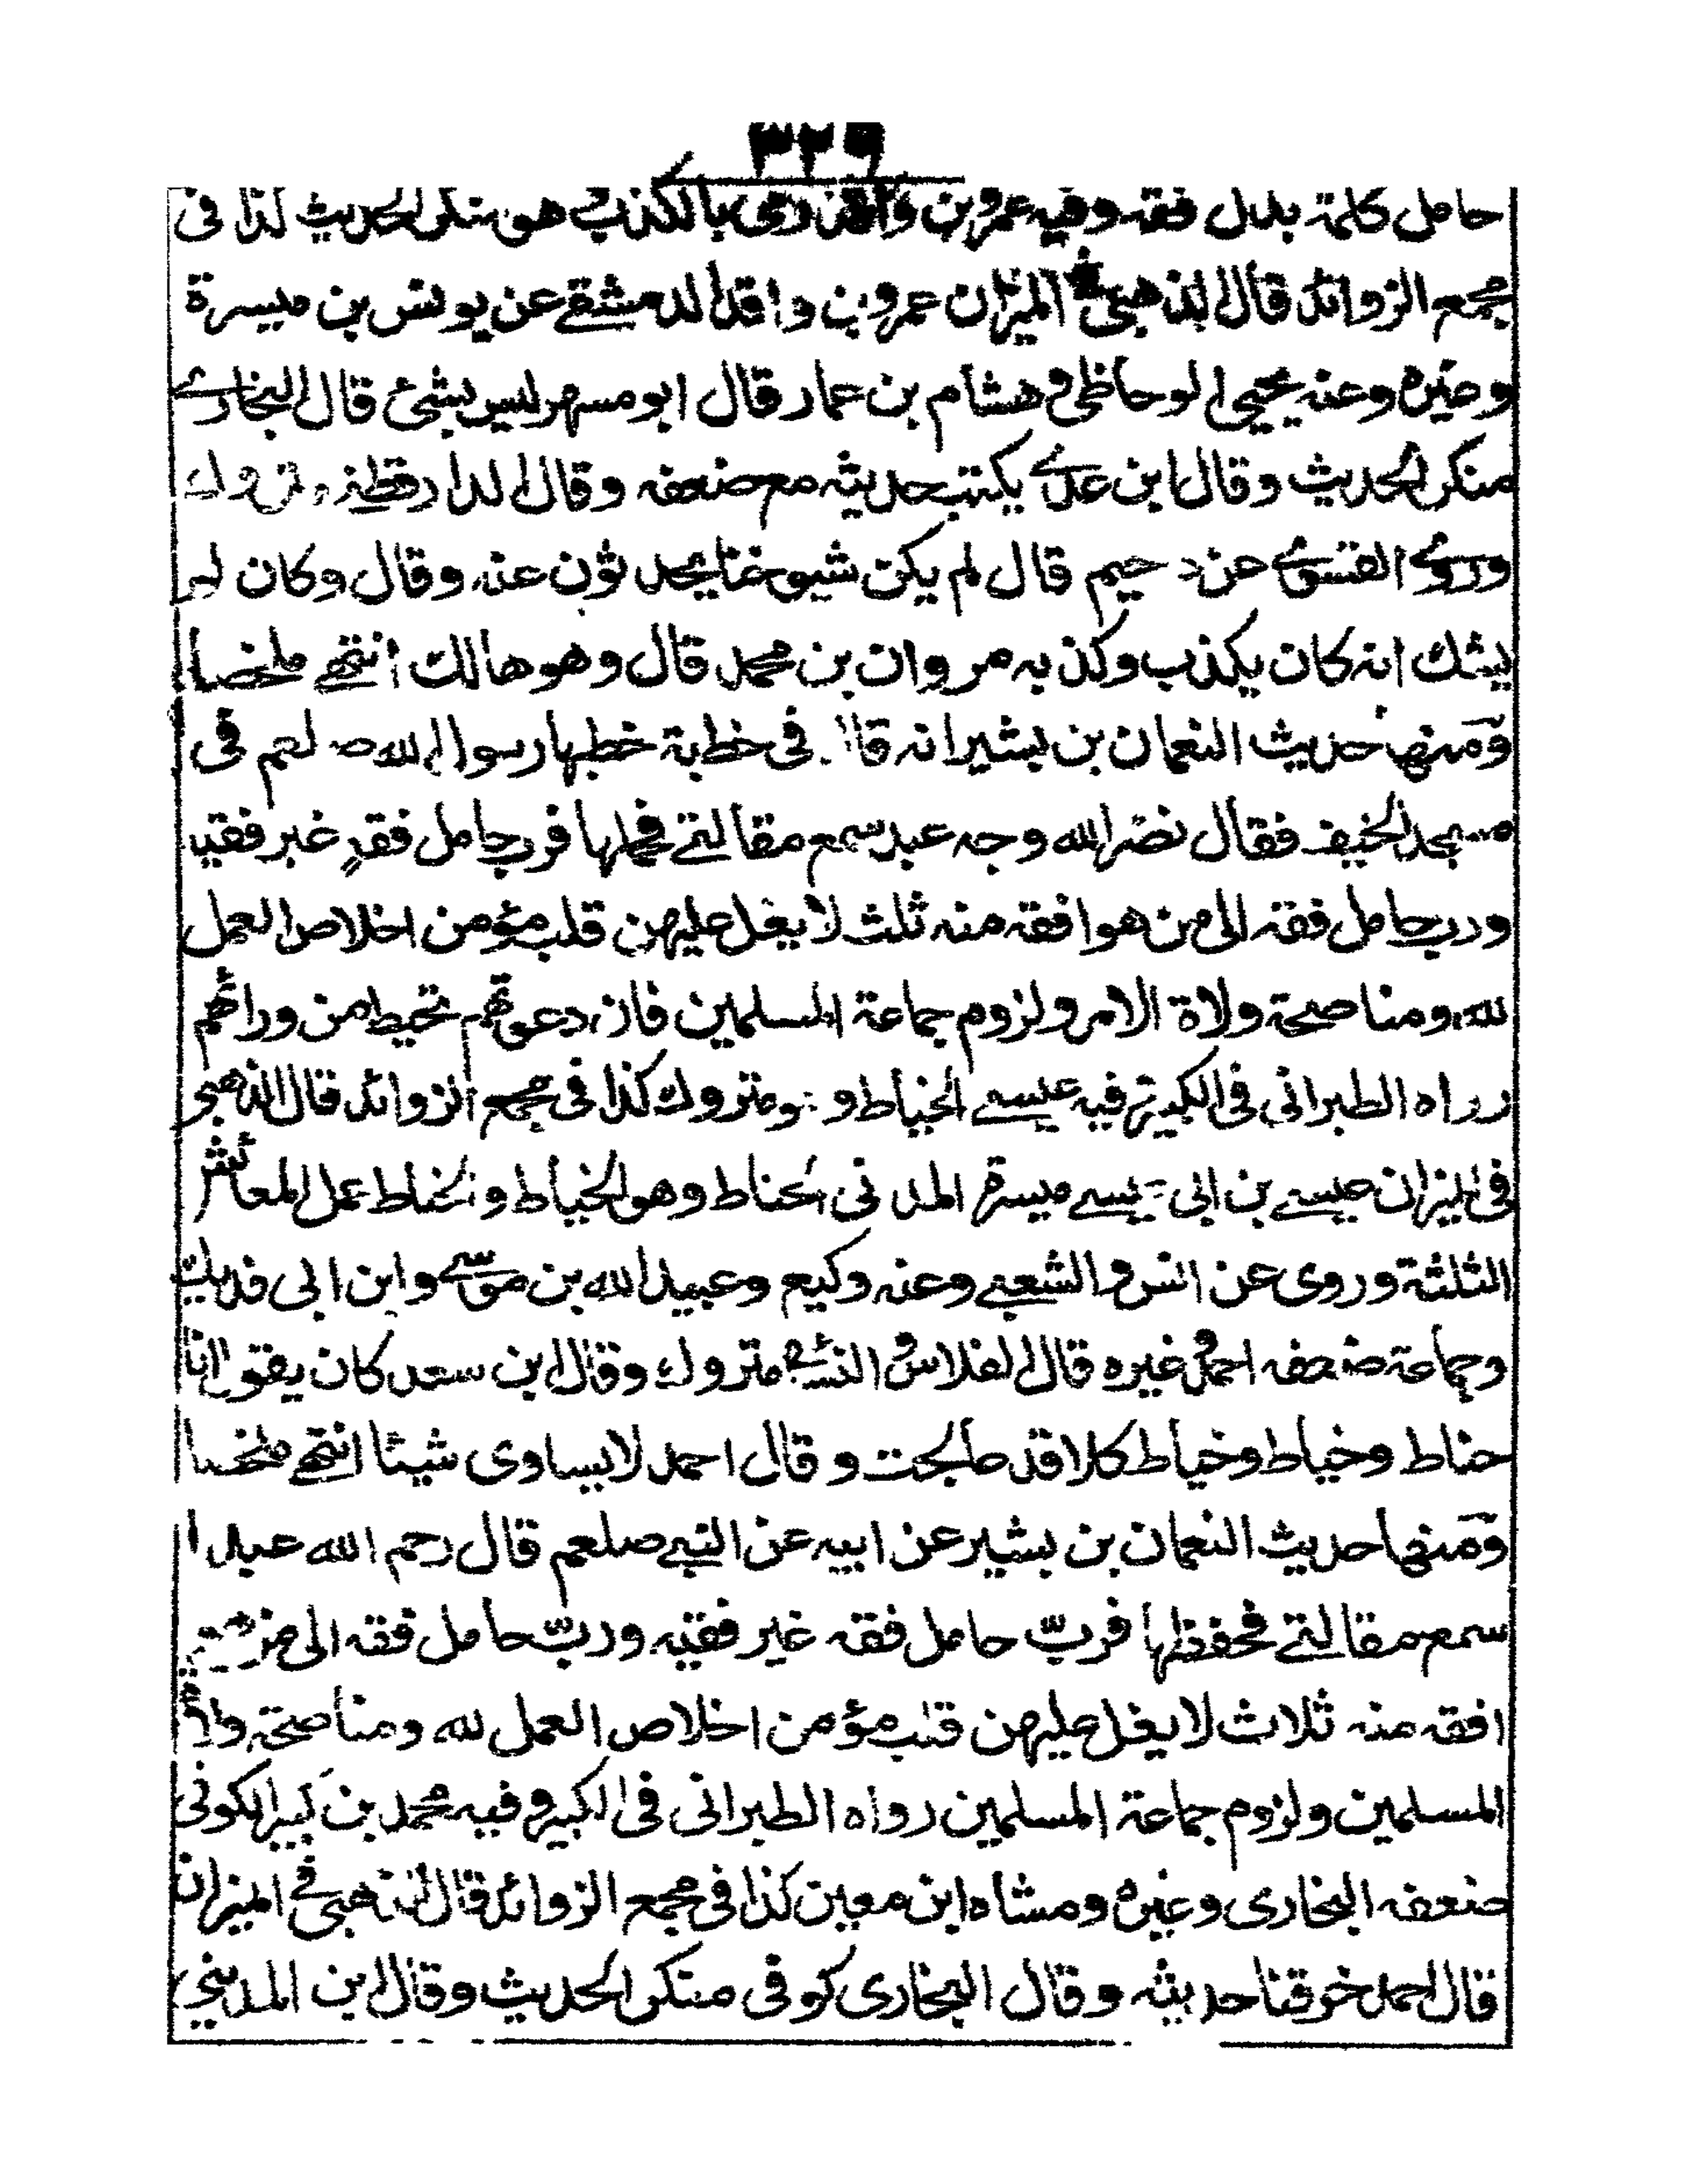 ٣٢٩
حامل كلمة بدل فقه وفيه عمرو بن واقد رمى بالكذب هو منكر الحديث كذا فى
مجمع الزوائد قال الذهبى فى الميزان عمرو بن واقد الدمشقے عن يونس بن ميسرة
وغيره وعنه يحيى الوحاظى وهشام بن عمار قال ابو مسهر ليس بشئ قال البخارے
منكر الحديث وقال ابن عدے يكتب حديثه مع ضعفه وقال الدارقطنے متروك
وروے الفسوے عن دحيم قال لم يكن شيوخنا يحدثون عنه وقال وكان لم
يشك انه كان يكذب وكذبه مروان بن محمد قال وهو هالك انتهے ملخصا
ومنها حديث النعمان بن بشير انه قال فى خطبة خطبها رسول الله صلعم فى
مسجد الخيف فقال نضر الله وجه عبد سمع مقالتے فحملها فرب حامل فقه غير فقيه
ورب حامل فقه الى من هو افقه منه ثلث لا يغل عليهن قلب مؤمن اخلاص العمل
لله ومناصحة ولاة الامر ولزوم جماعة المسلمين فان دعوتهم تحيط من ورائهم
رواه الطبرانى فى الكبير وفيه عيسے الخياط وهو متروك كذا فى مجمع الزوائد قال الذهبى
فى الميزان عيسے بن ابى عيسے ميسرة المدنى الحناط وهو الخياط والخباط عمل المعائش
الثلثة وروى عن انس والشعبے وعنه وكيع وعبيد الله بن موسے وابن ابى فديك
وجماعة ضعفه احمد وغيره قال الفلاس والنسائے متروك وقال ابن سعد كان يقول انا
حناط وخياط وخباط كلا قد عالجت وقال احمد لا يساوى شيئا انتهے ملخصا
ومنها حديث النعمان بن بشير عن ابيه عن النبے صلعم قال رحم الله عبدا
سمع مقالتے فحفظها فربّ حامل فقه غير فقيه وربّ حامل فقه الى من هو
افقه منه ثلاث لا يغل عليهن قلب مؤمن اخلاص العمل لله ومناصحة ولاة
المسلمين ولزوم جماعة المسلمين رواه الطبرانى فى الكبير وفيه محمد بن كثير الكوفى
ضعفه البخارى وغيره ومشاه ابن معين كذا فى مجمع الزوائد قال الذهبى فى الميزان
قال احمد خرقنا حديثه وقال البخارى كوفى منكر الحديث وقال ابن المدينى